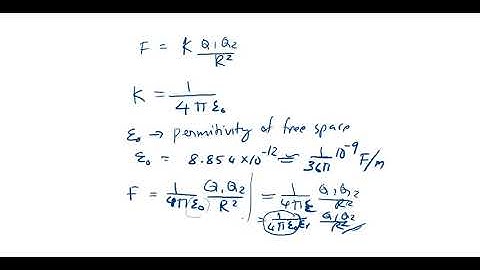 F = K Q₁Q₂/R²
K = 1/4πε₀
ε₀ → permitivity of free space
ε₀ = 8.854 × 10⁻¹² ≈ 1/36π 10⁻⁹ F/m
F = 1/4πε₀ Q₁Q₂/R² | = 1/4πε Q₁Q₂/R²
= 1/4πε₀εᵣ Q₁Q₂/R²